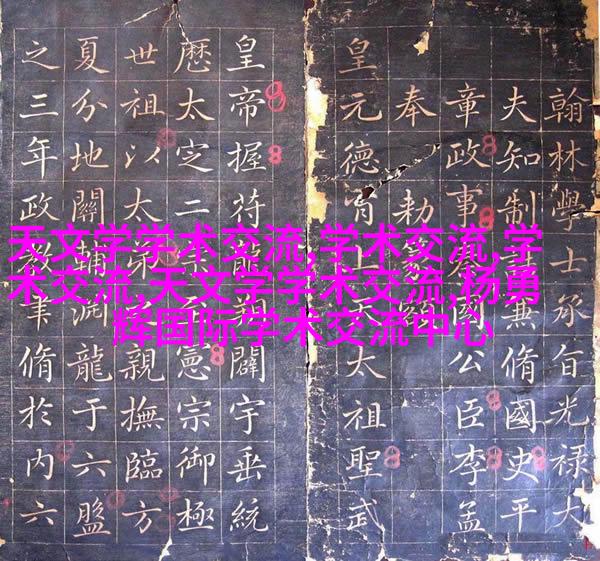 天文学学术交流,学术交流,学
术交流,天文学学术交流,杨勇
辉国际学术交流中心
翰林學士承旨光祿大
夫知制誥兼脩國史平
章政事國公臣李孟
奉勅
皇元德太祖聖武
皇帝握符龍闢宇垂統
歷太定二宗憲宗御極
世祖以太弟親撫臨方
夏分地關輔淵龍于六盤
之三年政教聿脩於内六